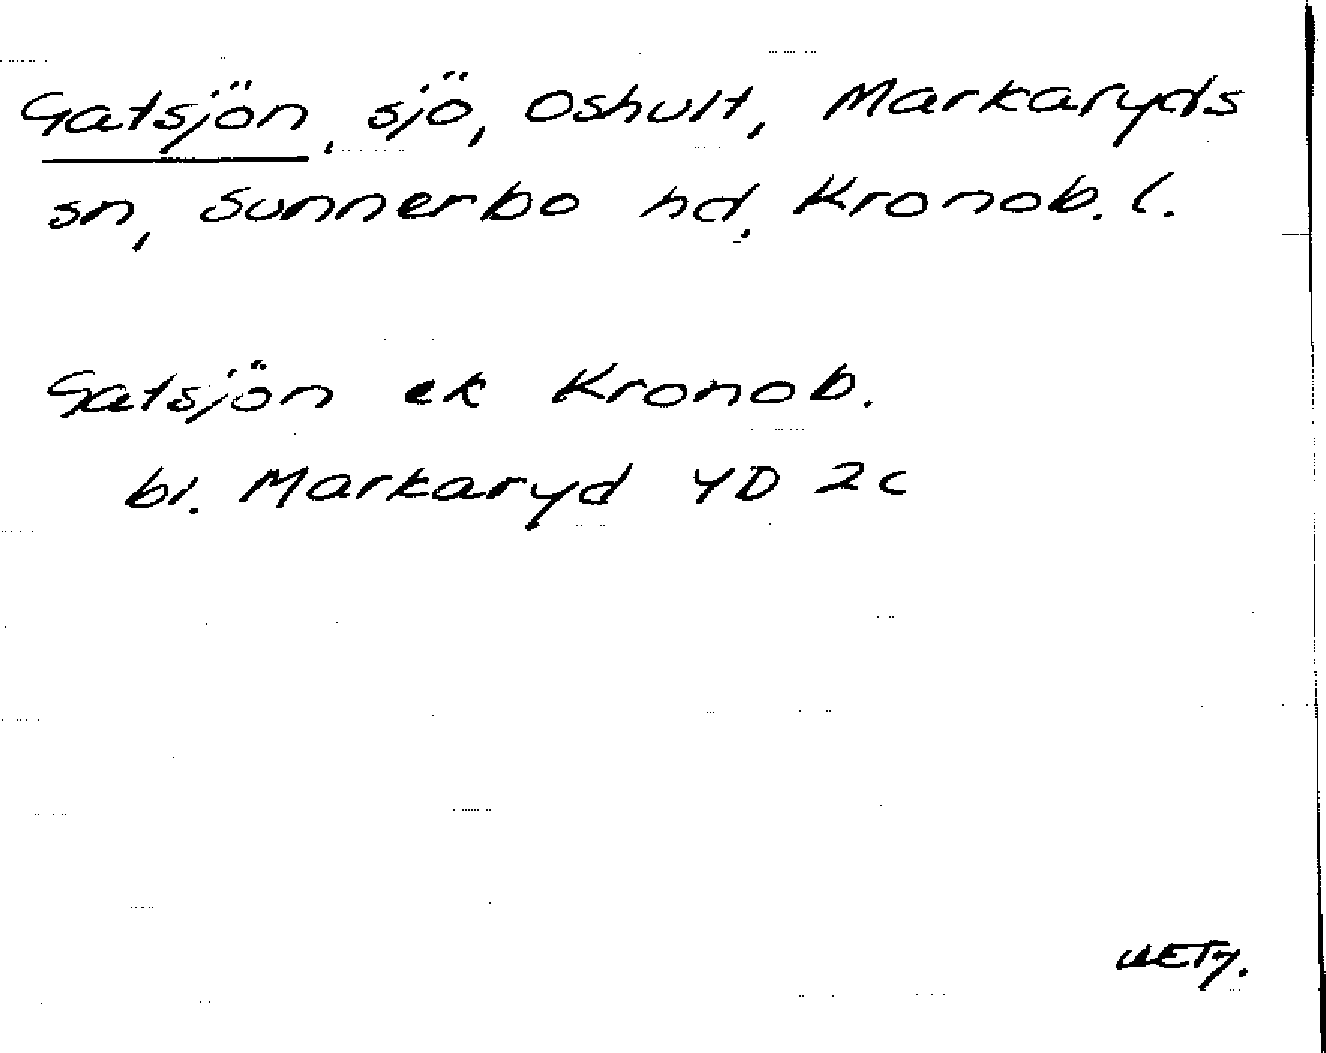 Gatsjön, sjö, Oshult, Markaryds
sn, Sunnerbo hd, Kronob. l.
Gatsjön ek Kronob.
bl. Markaryd 4D 2c